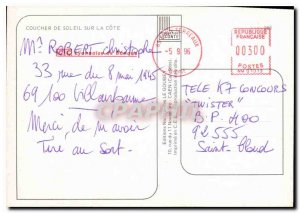 COUCHER DE SOLEIL SUR LA CÔTE
Mr ROBERT Christophe
33 rue du 8 mai 1945
69100 Villeurbanne
Merci, de m'avoir
Tiré au sort.
- 5 9 96
REPUBLIQUE
FRANCAISE
00300
POSTES
TELE K7 CONCOURS
"TWISTER"
B.P. 400
92555
Saint Cloud